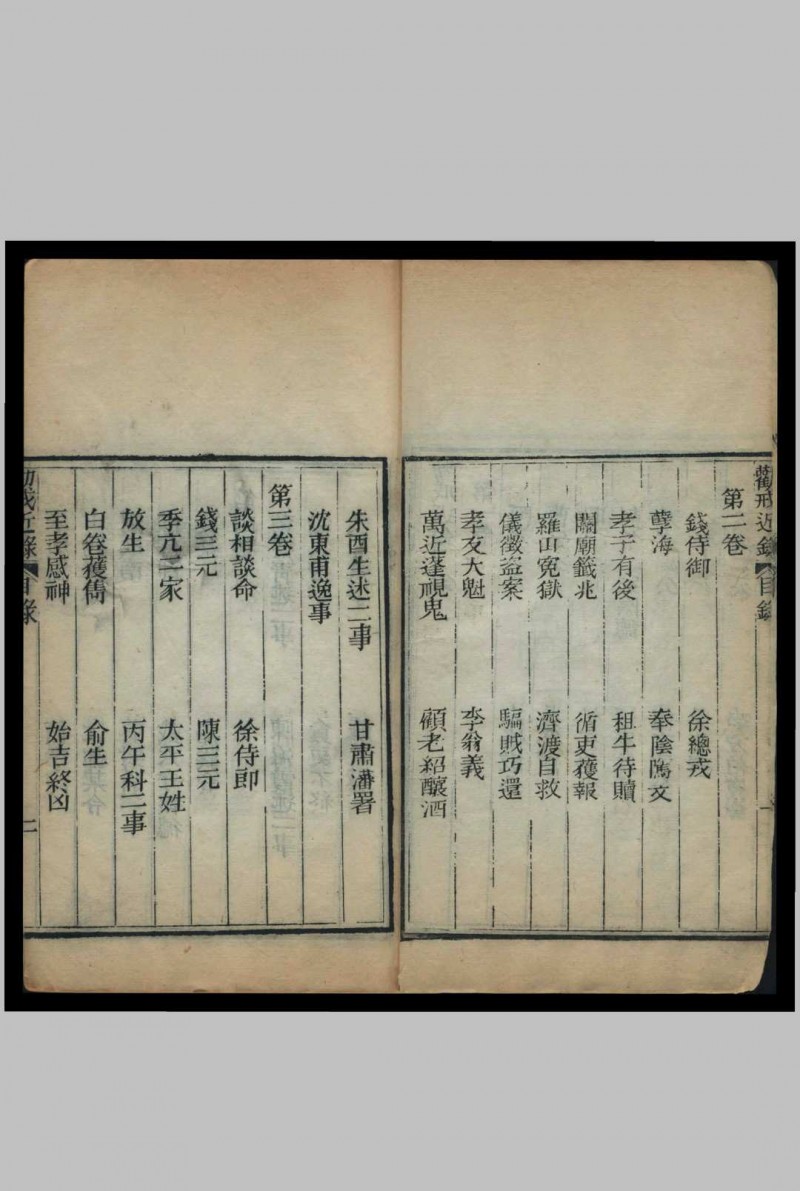 勸戒近錄 目錄
第二卷
錢侍御 徐總戎
孽海 奉陰騭文
孝子有後 租牛待贖
關廟籤兆 循吏獲報
羅山冤獄 濟渡自救
儀徵盜案 騙賊巧還
孝友大魁 李翁義
萬近蓬視鬼 顧老紹釀酒
朱酉生述二事 甘肅潘署
沈東甫逸事
第三卷
談相談命 徐侍郎
錢三元 陳三元
季亢二家 太平王姓
放生 丙午科二事
白卷獲雋 俞生
至孝感神 始吉終凶
勸戒近錄 目錄 二